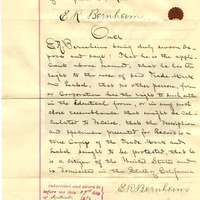 E.R. Bernheim
Oath
E.R. Bernheim being duly sworn de-
poses and says: That he is the appli-
cant above named; that he has the
right to the use of said Trade Mark
and Label; that no other person, firm
or Corporation has the right to such use
in the identical form, or in any such
close resemblance that might be cal-
culated to deceive; that the description
and specimen presented for Record is a
true Copy of the Trade Mark and
Label sought to be protected; that he
is a citizen of the United States and
is domiciled in this State, California
Subscribed and sworn to
before me this 27th day
of
E.R. Bernheim